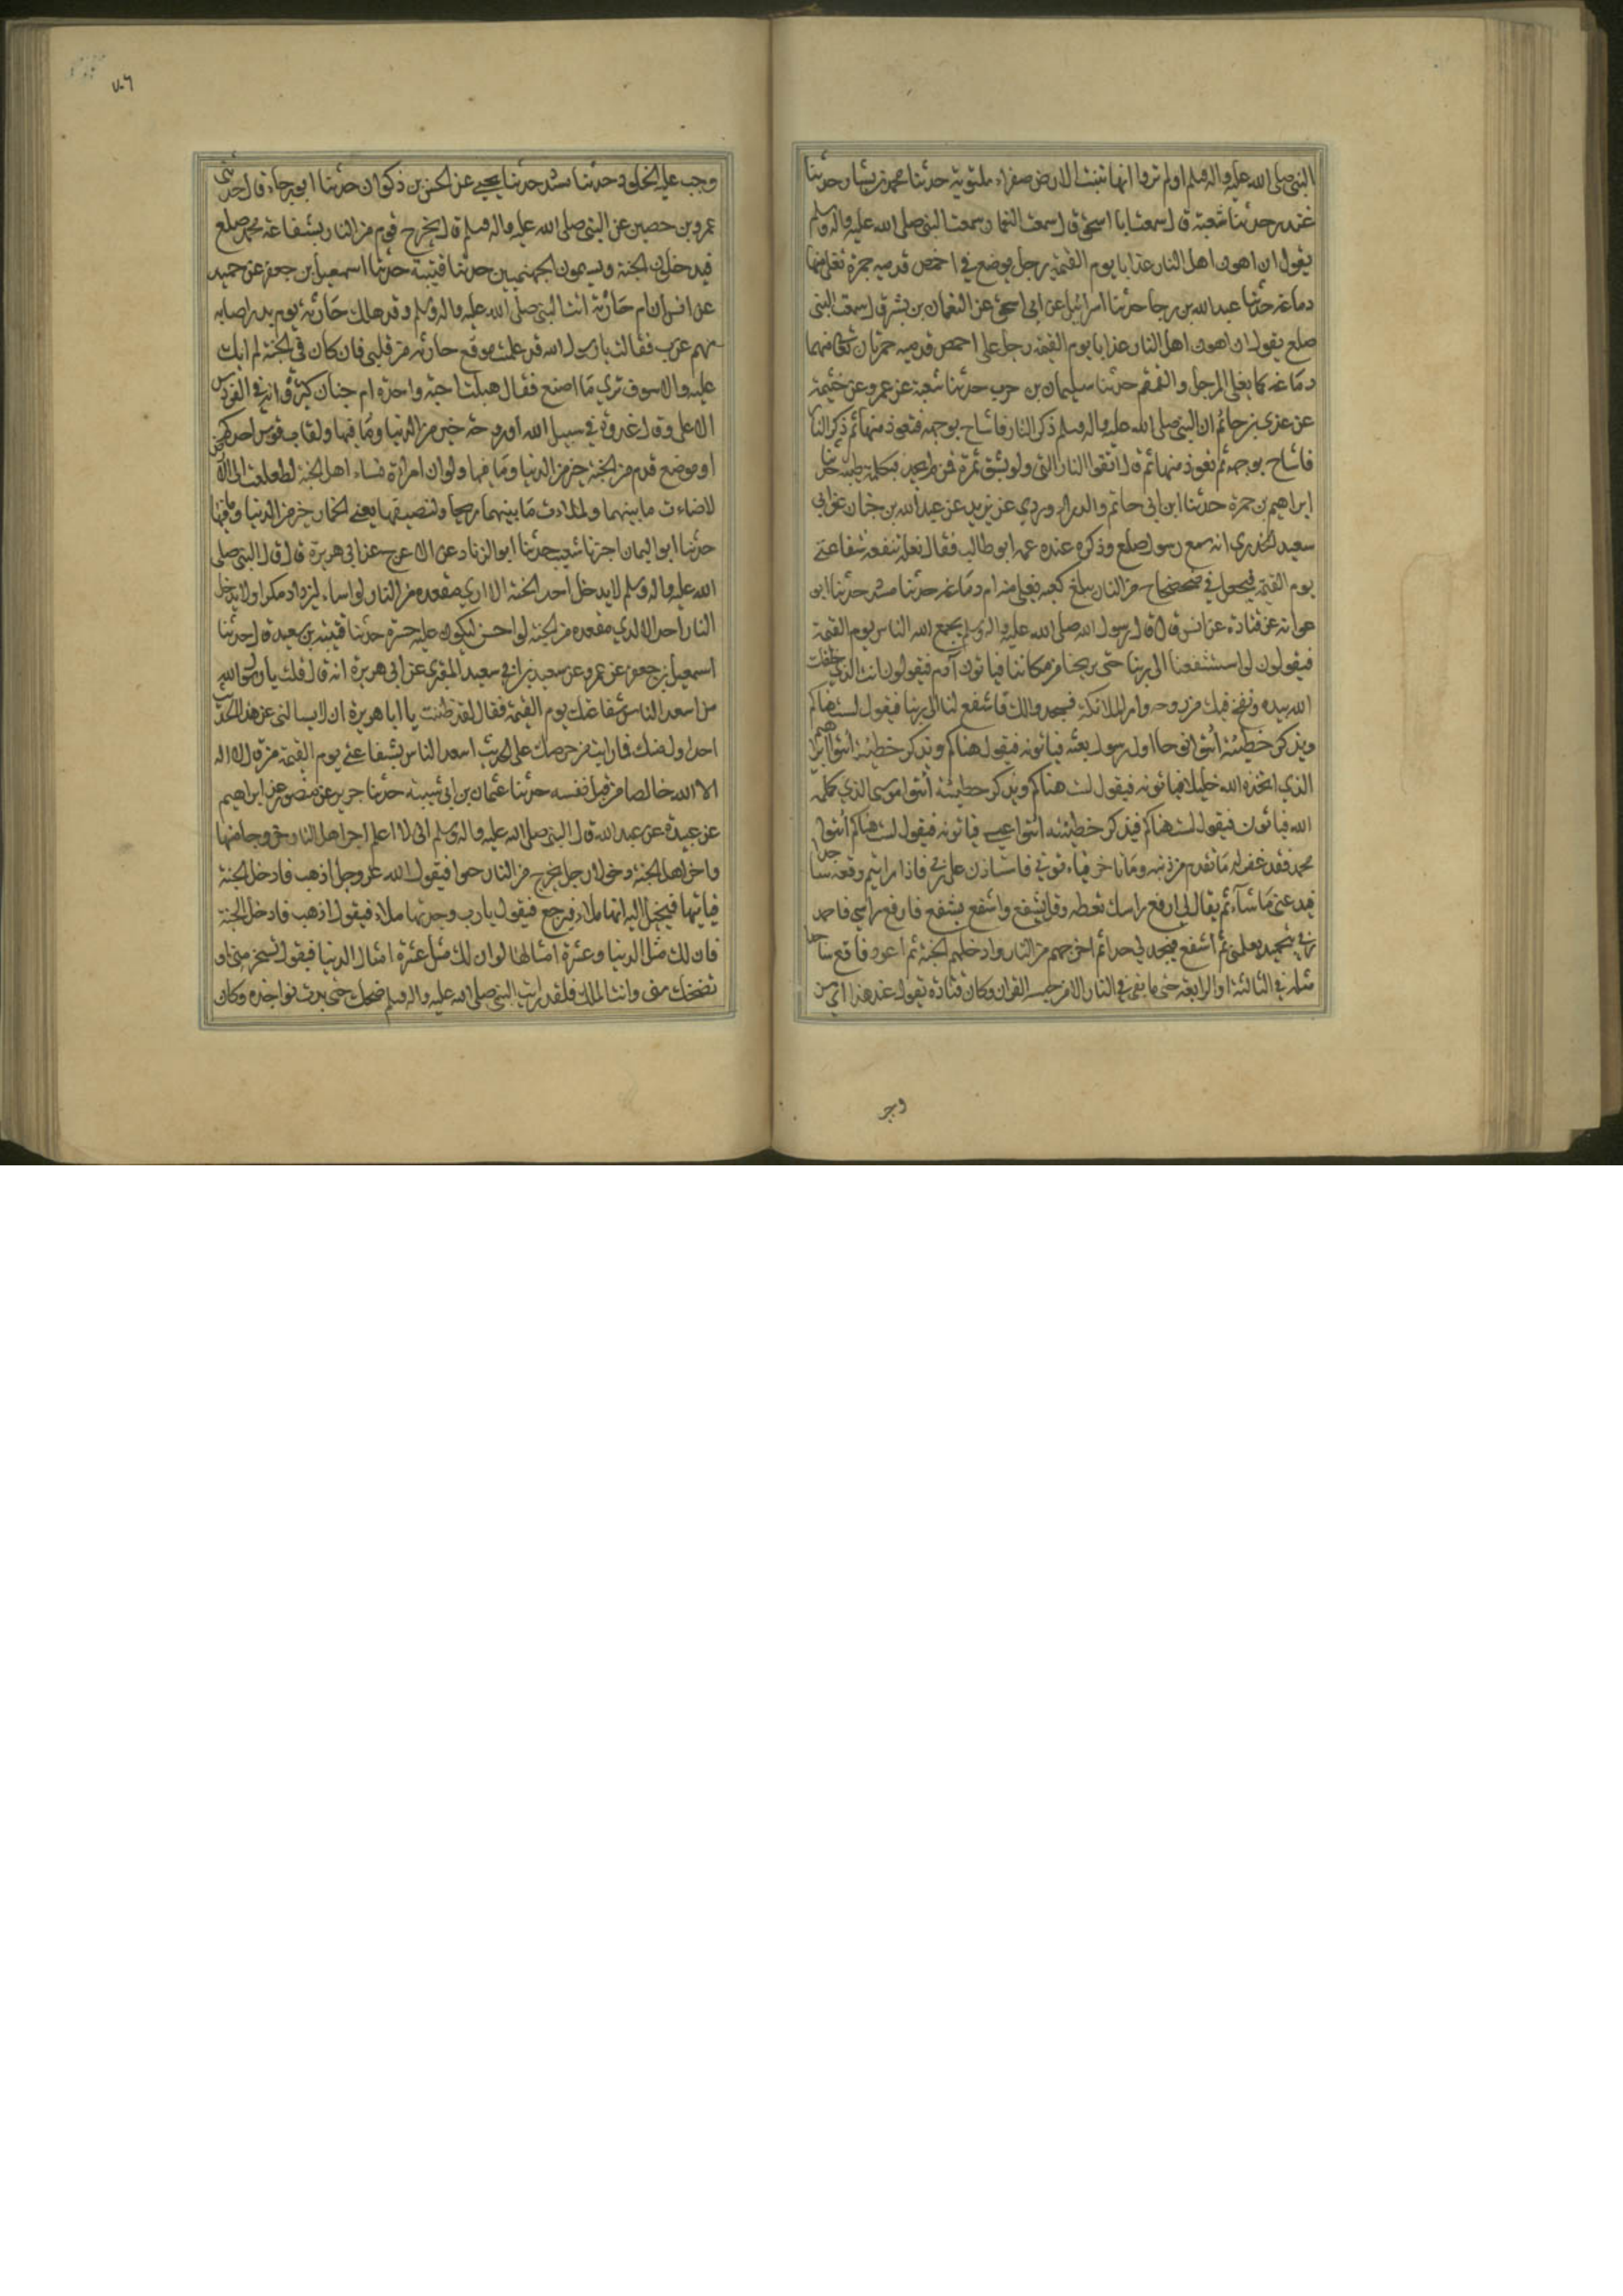 النبي صلى الله عليه واله وسلم اولم تروا انها تنبت الارض صفراء ملتوية حدثنا محمد بن بشار حدثنا
غندر حدثنا شعبة قال سمعت ابا اسحق قال سمعت النعمان سمعت النبي صلى الله عليه واله وسلم
يقول ان اهون اهل النار عذابا يوم القيمة رجل يوضع في اخمص قدميه جمرة تغلى منها
دماغه حدثنا عبد الله بن رجا حدثنا اسرائيل عن ابي اسحق عن النعمان بن بشير قال سمعت النبي
صلع يقول ان اهون اهل النار عذابا يوم القيمة رجل على اخمص قدميه جمرتان تغلى منهما
دماغه كما يغلى المرجل والقمقم حدثنا سليمان بن حرب حدثنا شعبة عن عمرو عن خثيمة
عن عدي بن حاتم ان النبي صلى الله عليه واله وسلم ذكر النار فاشاح بوجهه فتعوذ منها ثم ذكر النار
فاشاح بوجهه ثم تعوذ منها ثم قال اتقوا النار التي ولو بشق تمرة فمن لم يجد فبكلمة طيبة حدثنا
ابراهيم بن حمزة حدثنا ابن ابي حاتم والدراوردي عن يزيد عن عبد الله بن خبان عن ابي
سعيد الخدري انه سمع رسول صلع وذكره عنده عمه ابو طالب فقال لعله تنفعه شفاعتي
يوم القيمة فيجعل في ضحضاح من النار يبلغ كعبه يغلي منه ام دماغه حدثنا مسدد حدثنا ابو
عوانه عن قتادة عن انس قال قال رسول الله صلى الله عليه واله وسلم يجمع الله الناس يوم القيمة
فيقولون لو استشفعنا الى ربنا حتى يريحنا من مكاننا فياتون آدم فيقولون انت الذي خلقك
الله بيده ونفخ فيك من روحه وامر الملائكة فسجدوا لك فاشفع لنا الى ربنا فيقول لست هناكم
ويذكر خطيئته ائتوا نوحا اول رسول بعثه فياتونه فيقول هناكم ويذكر خطيئته ائتوا ابراهيم
الذي اتخذه الله خليلا فياتونه فيقول لست هناكم ويذكر خطيئته ائتوا موسى الذي كلمه
الله فياتون فيقول لست هناكم فيذكر خطيئته ائتوا عيسى فياتونه فيقول لست هناكم ائتوا
محمد فقد غفر له ما تقدم من ذنبه وما تاخر فياتوني فاستاذن على ربي فاذا رايتم وقعت ساجدا
فيدعني ما شآء ثم يقال لي ارفع راسك تعطه وقل يسمع واشفع يشفع فارفع راسي فاحمد
ربي بتحميد يعلمني ثم اشفع فيحد لي حدا ثم اخرجهم من النار وادخلهم الجنة ثم اعود فاقع ساجدا
مثله في الثالثة او الرابعة حتى ما بقي في النار الا من حبسه القران وكان قتادة يقول عند هذا اي من
وجب
٧٠٦
وجب عليه الخلود حدثنا مسدد حدثنا يحيى عن الحسن بن ذكوان حدثنا ابو رجاء قال حدثني
عمرو بن حصين عن النبي صلى الله عليه واله وسلم قال يخرج قوم من النار بشفاعة محمد صلع
فيدخلون الجنة ويسمون الجهنميين حدثنا قتيبة حدثنا اسمعيل بن جعفر عن حميد
عن انس ان ام حارثة اتت النبي صلى الله عليه واله وسلم وقد هلك حارثة يوم بدر اصابه
سهم غرب فقالت يا رسول الله قد علمت موقع حارثه من قلبي فان كان في الجنة لم ابك
عليه والا سوف ترى ما اصنع فقال هبلت اجنة واحدة ام جنان كثيرة وانه في الفردوس
الاعلى وقال غدوة في سبيل الله او روحة خير من الدنيا وما فيها ولقاب قوس احدكم
او موضع قدم من الجنة خير من الدنيا وما فيها ولو ان امراة نساء اهل الجنة لطعلعت الى الارض
لاضاءت ما بينهما ولملات ما بينهما ريحا ولنصيفها يعني الخمار خير من الدنيا وما فيها
حدثنا ابو اليمان اخبرنا شعيب حدثنا ابو الزناد عن الاعرج عن ابي هريرة قال قال النبي صلى
الله عليه واله وسلم لا يدخل احد الجنة الا اري مقعده من النار لو اساء ليزداد مكرا ولا يدخل
النار احد الا ادي مقعده من الجنة لو احسن ليكون عليه حسرة حدثنا قتيبة بن سعيد قال حدثنا
اسمعيل بن جعفر عن عمرو عن سعيد بن ابي سعيد المقبري عن ابي هريرة انه قال قلت يا رسول الله
من اسعد الناس بشفاعتك يوم القيمة فقال لقد ظننت يا ابا هريرة ان لا يسالني عن هذا الحديث
احد اول منك فا رايت من حرصك على الحديث اسعد الناس بشفاعتي يوم القيمة من قال لا اله
الا الله خالصا من قبل نفسه حدثنا عثمان بن ابي شيبة حدثنا جرير عن منصور عن ابراهيم
عن عبيدة عن عبد الله قال النبي صلى الله عليه واله وسلم اني لا اعلم اخر اهل النار خروجا منها
واخر اهل الجنة دخولا رجل يخرج من النار حبوا فيقول الله عز وجل اذهب فادخل الجنة
فياتيها فيخيل اليه انها ملاء فيرجع فيقول يا رب وجدتها ملاء فيقول اذهب فادخل الجنة
فان لك مثل الدنيا وعشرة امثالها او ان لك مثل عشرة امثال الدنيا فيقول تسخر مني او
تضحك مني وانت الملك فلقد رايت النبي صلى الله عليه واله وسلم ضحك حتى بدت نواجذه وكان